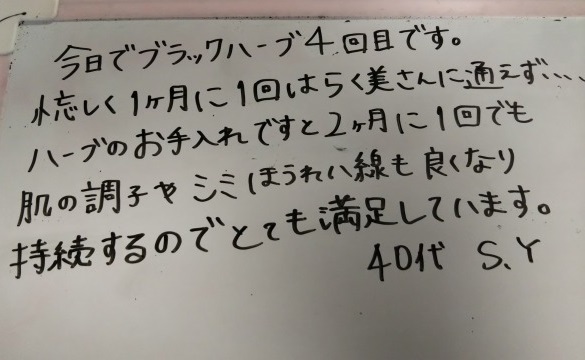 今日でブラックハーブ4回目です。
忙しく1ヶ月に1回はらく美さんに通えず、、、
ハーブのお手入れですと2ヶ月に1回でも
肌の調子や シミ ほうれい線も良くなり
持続するのでとても満足しています。
40代 S.Y